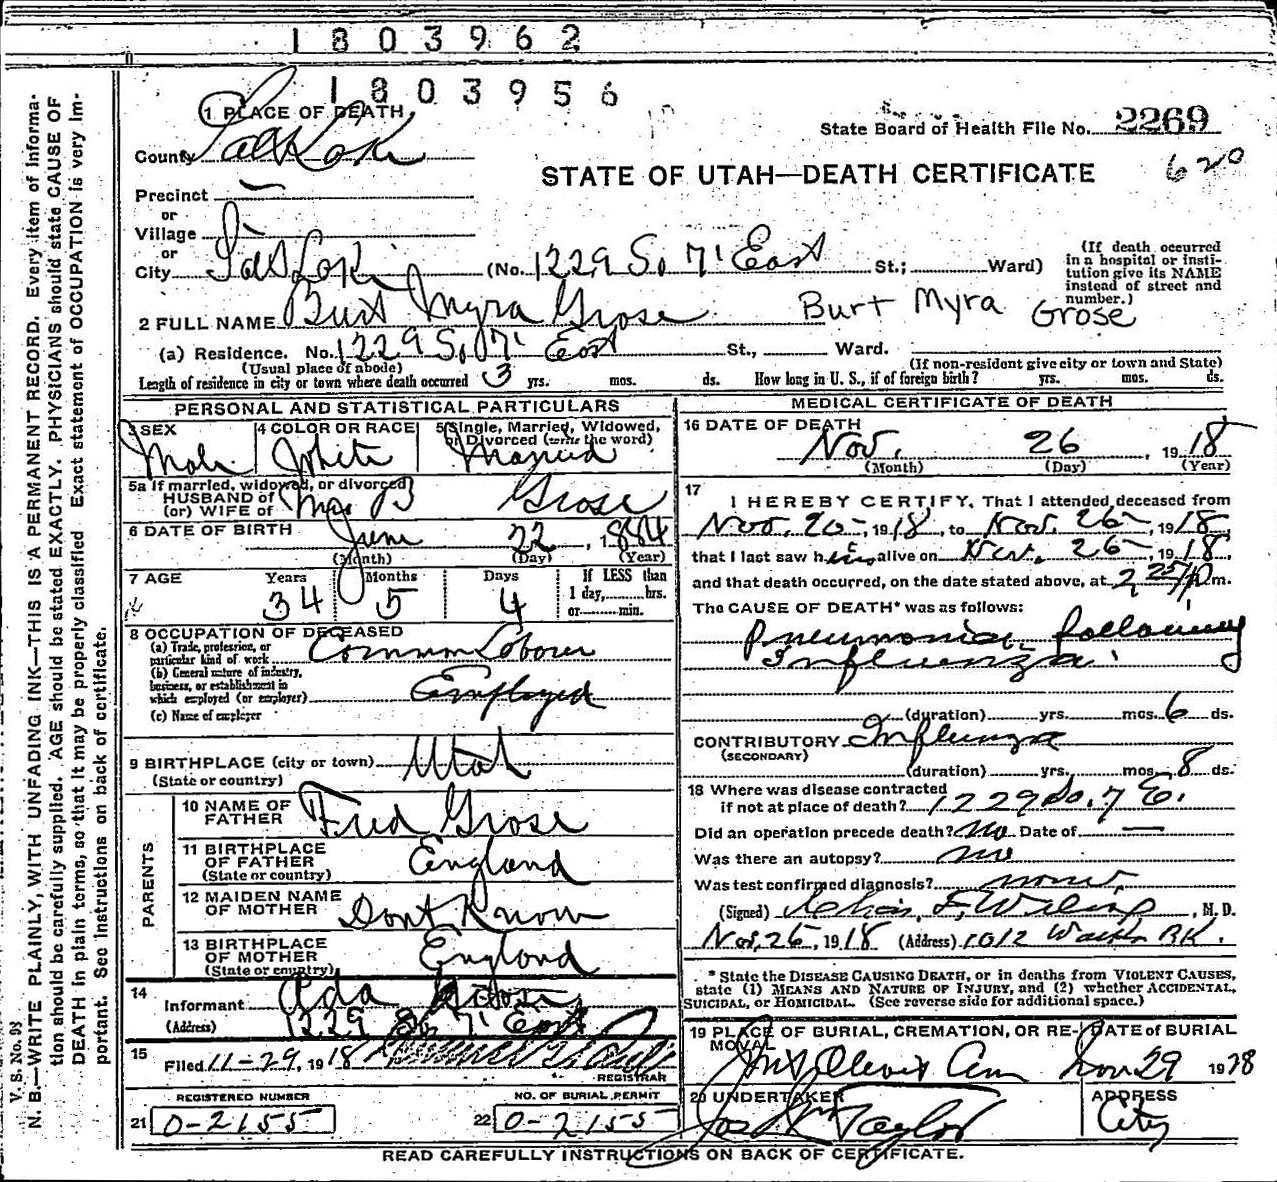 1803962
1803956
1 PLACE OF DEATH
State Board of Health File No. 2269
County Salt Lake
STATE OF UTAH—DEATH CERTIFICATE 620
Precinct —
or
Village
or
City Salt Lake (No. 1229 So 7' East St.; Ward) (If death occurred in a hospital or insti-
tution give its NAME instead of street and number.)
2 FULL NAME Burt Myra Grose Burt Myra Grose
(a) Residence. No. 1229 So 7' East St., Ward.
(Usual place of abode) (If non-resident give city or town and State)
Length of residence in city or town where death occurred 3 yrs. mos. ds. How long in U. S., if of foreign birth? yrs. mos. ds.
PERSONAL AND STATISTICAL PARTICULARS
3 SEX 4 COLOR OR RACE 5 Single, Married, Widowed,
or Divorced (write the word)
Male White Married
5a If married, widowed, or divorced
HUSBAND of
(or) WIFE of Mrs B Grose
6 DATE OF BIRTH June 22, 1884
(Month) (Day) (Year)
7 AGE Years Months Days If LESS than
1 day, hrs.
or min.
34 5 4
8 OCCUPATION OF DECEASED
(a) Trade, profession, or
particular kind of work Common Laborer
(b) General nature of industry,
business, or establishment in
which employed (or employer) Employed
(c) Name of employer
9 BIRTHPLACE (city or town) Utah
(State or country)
PARENTS
10 NAME OF
FATHER Fred Grose
11 BIRTHPLACE
OF FATHER England
(State or country)
12 MAIDEN NAME
OF MOTHER Dont Know
13 BIRTHPLACE
OF MOTHER England
(State or country)
14
Informant Ada Grose
(Address) 1229 So. 7' East
15
Filed 11-29, 1918
REGISTRAR
REGISTERED NUMBER NO. OF BURIAL PERMIT
21 0-2155 22 0-2155
MEDICAL CERTIFICATE OF DEATH
16 DATE OF DEATH
Nov. 26, 1918
(Month) (Day) (Year)
17
I HEREBY CERTIFY, That I attended deceased from
Nov. 20, 1918, to Nov. 26, 1918,
that I last saw him alive on Nov. 26, 1918,
and that death occurred, on the date stated above, at 2 25 P m.
The CAUSE OF DEATH* was as follows:
Pneumonia following
Influenza.
(duration) yrs. mos. 6 ds.
CONTRIBUTORY Influenza
(SECONDARY)
(duration) yrs. mos. 8 ds.
18 Where was disease contracted
if not at place of death? 1229 So. 7 E.
Did an operation precede death? No Date of —
Was there an autopsy? no
Was test confirmed diagnosis? none
(Signed) , M. D.
Nov, 26, 1918 (Address) 1012 Walker BK.
*State the DISEASE CAUSING DEATH, or in deaths from VIOLENT CAUSES,
state (1) MEANS AND NATURE OF INJURY, and (2) whether ACCIDENTAL,
SUICIDAL, or HOMICIDAL. (See reverse side for additional space.)
19 PLACE OF BURIAL, CREMATION, OR RE-
MOVAL DATE of BURIAL
Mt Olivet Cem Nov 29 1918
20 UNDERTAKER ADDRESS
Jos Wm Taylor City
READ CAREFULLY INSTRUCTIONS ON BACK OF CERTIFICATE.
V. S. No. 98
N. B.—WRITE PLAINLY, WITH UNFADING INK—THIS IS A PERMANENT RECORD. Every item of informa-
tion should be carefully supplied. AGE should be stated EXACTLY. PHYSICIANS should state CAUSE OF
DEATH in plain terms, so that it may be properly classified. Exact statement of OCCUPATION is very im-
portant. See instructions on back of certificate.